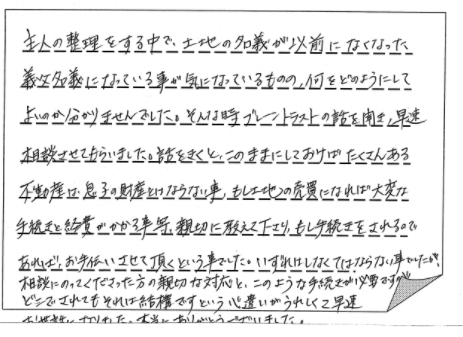 主人の整理をする中で、土地の名義が以前になくなった
義父名義になっている事が気になっているものの、何をどのようにして
よいのか分かりませんでした。そんな時ブレーントラストの話を聞き、早速
相談させてもらいました。話をきくと、このままにしておけばたくさんある
不動産は、息子の財産とはならない事、もし土地の売買になれば大変な
手続きと経費がかかる事等、親切に教えて下さり、もし手続きをされるので
あれば、お手伝いさせて頂くという事でした。いずれはしなくてはならない事でしたが、
相談にのってくださった方の親切な対応と、このような手続きが必要ですが
どこでされてもそれは結構ですという心遣いがうれしくて早速
お世話になりました。本当にありがとうございました。